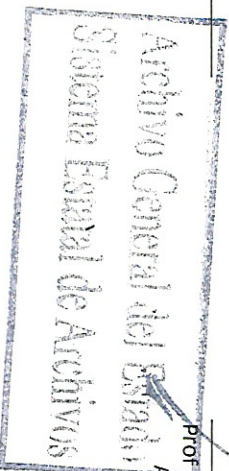 Archivo General del Estado
Sistema Estatal de Archivos
Prof
A